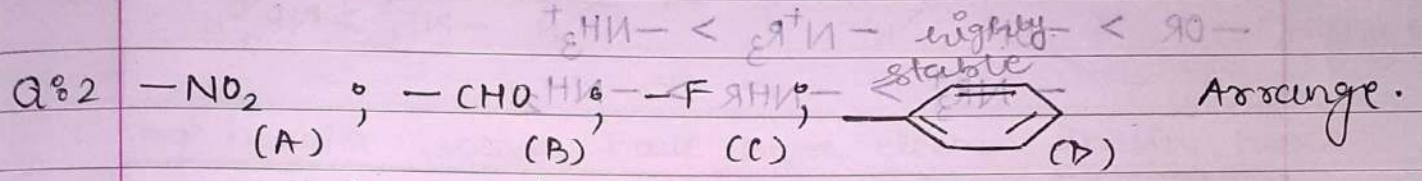 Q:2 -NO₂ ; -CHO ; -F ; Arrange.
(A) (B) (C) (D)